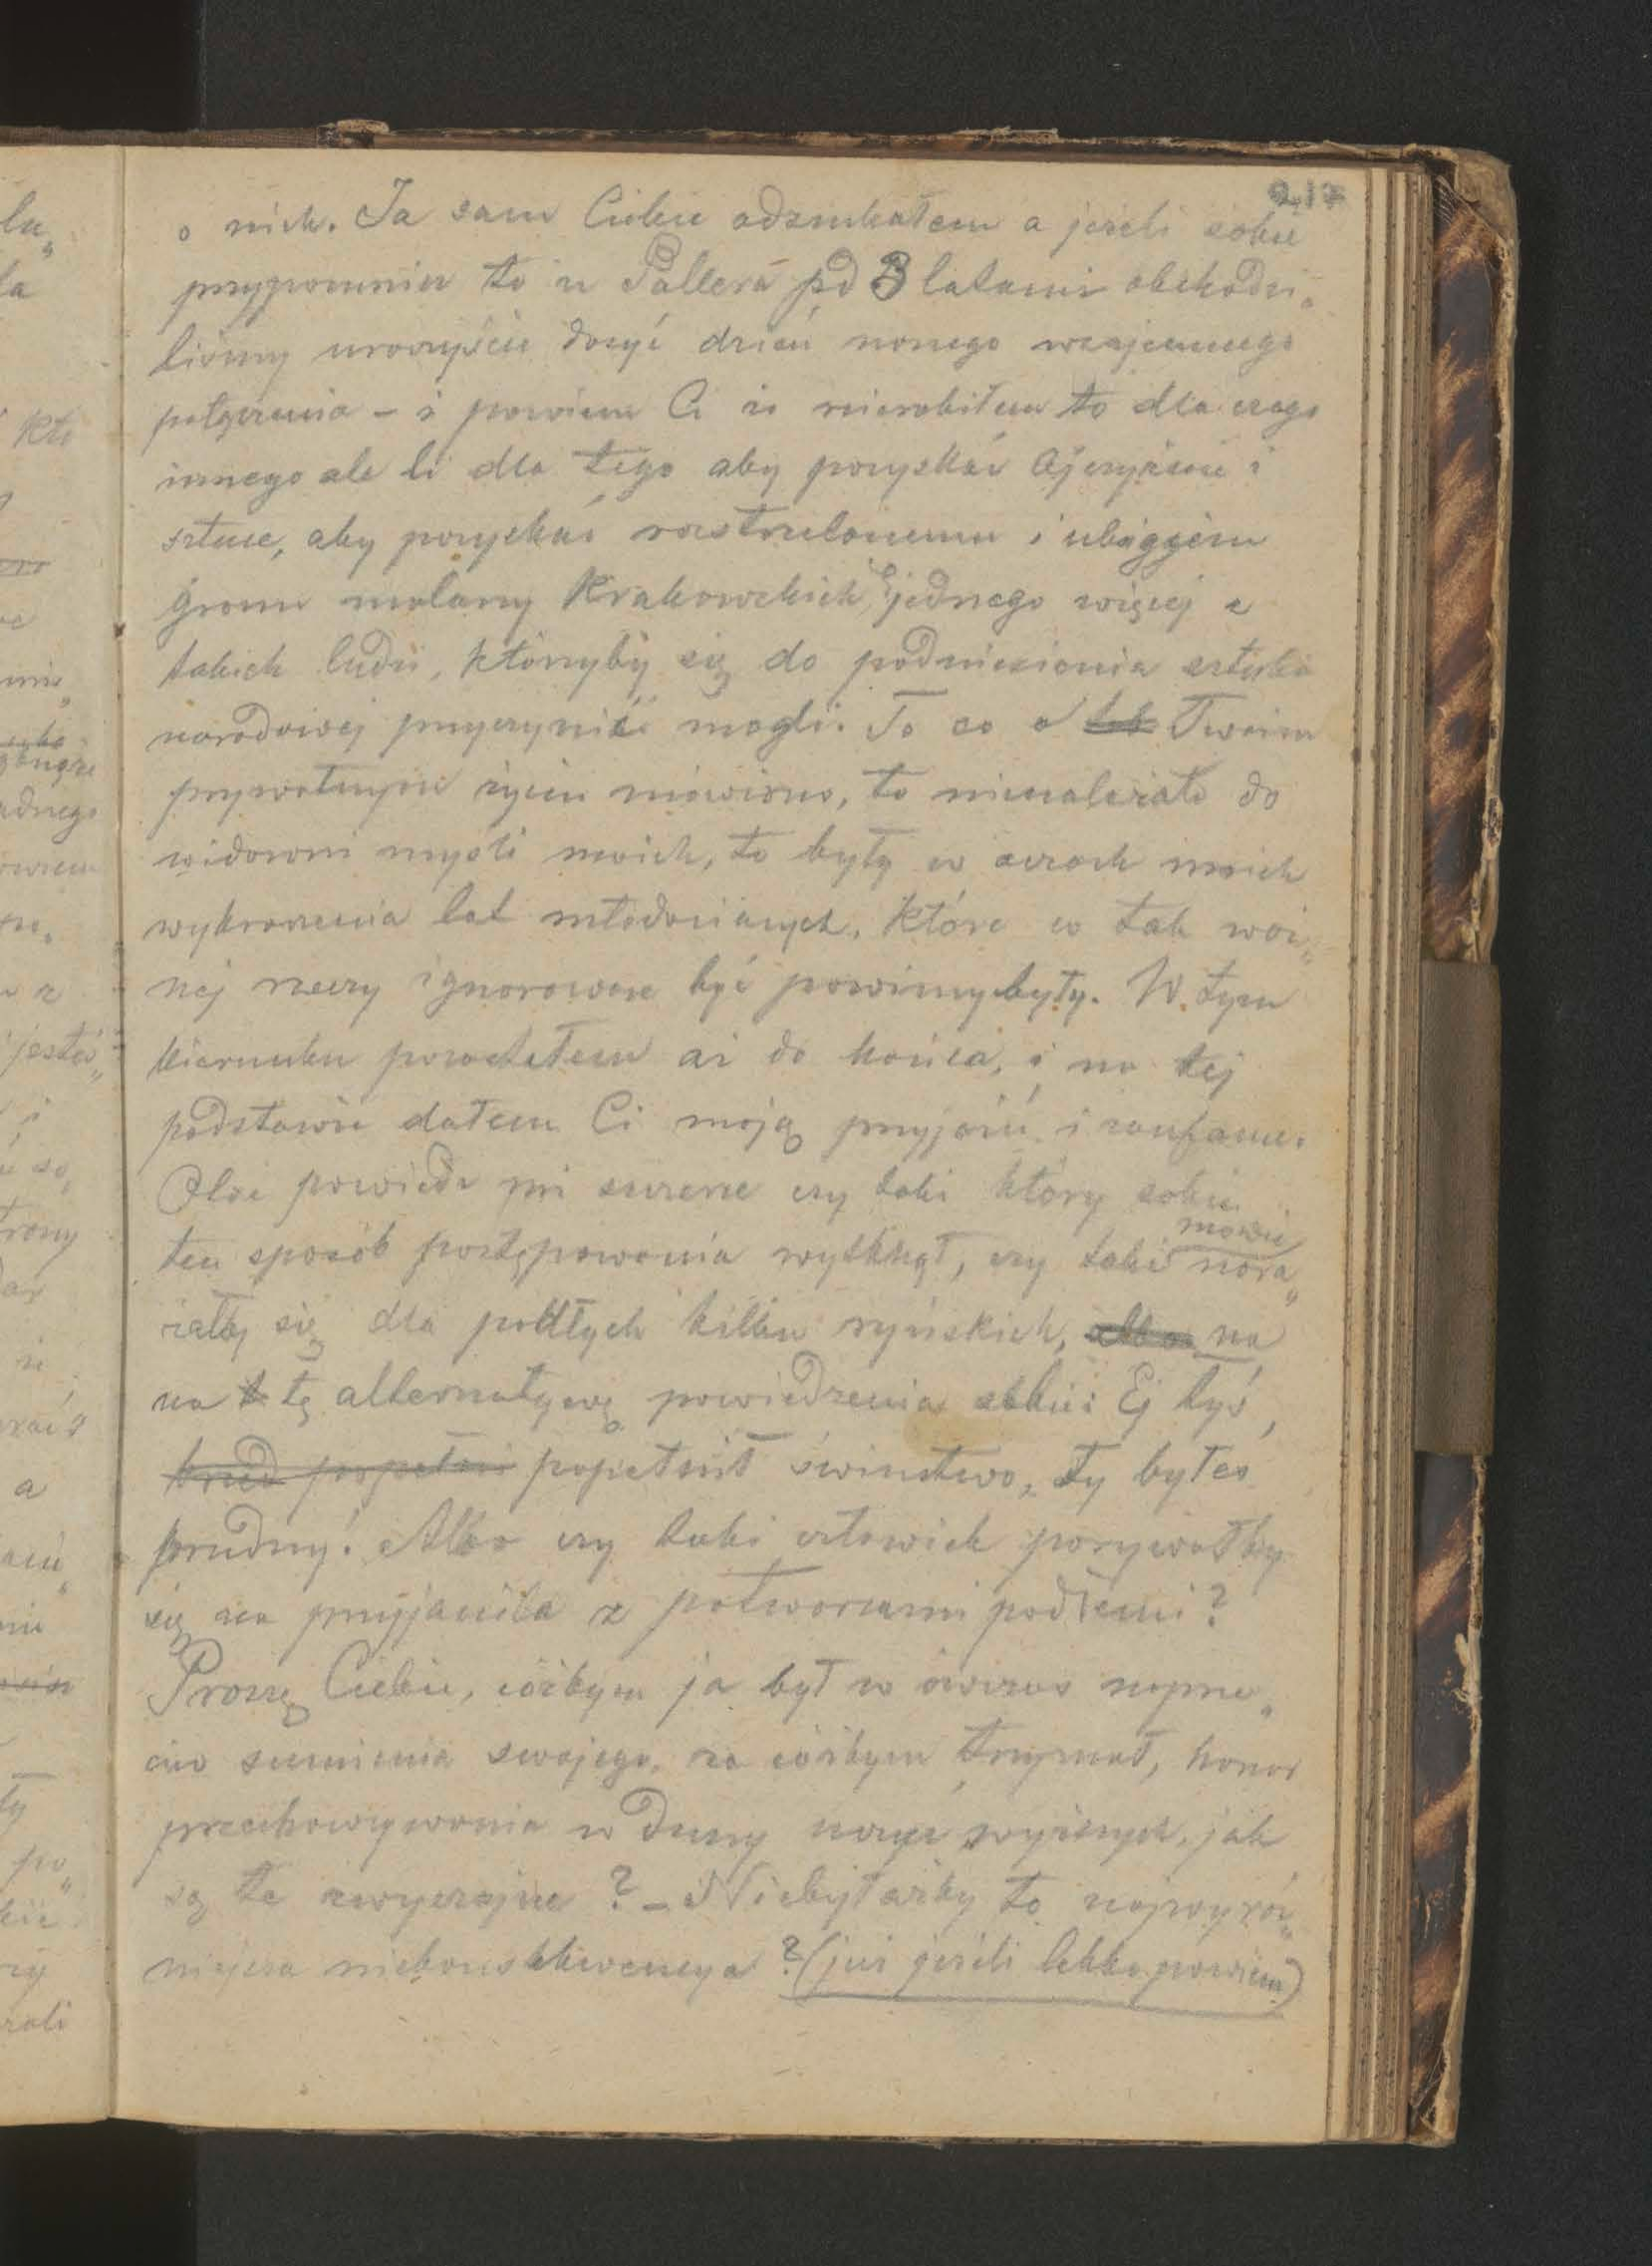 217
o nich. Ja sam Ciebie odszukałem a jeżeli sobie
przypomnisz to u Pollera pd 3 latami obchodzi„
liśmy uroczyście dosyć dzień nowego wzajemnego
połączenia – i powiem Ci że nierobiłem to dla czego
innego ale li dla tego aby pozyskać Ojczyźnie i
sztuce, aby pozyskać rostrzelonemu i ubogiemu
gronu malarzy Krakowskich, jednego więcej z
takich ludzi, którzyby się do podniesienia sztuki
narodowej przyczynić mogli. To co o Twoim
prywatnym życiu mówiono, to nienależało do
widowni myśli moich, to były w oczach moich
wykroczenia lat młodocianych, które w tak waż„
nej rzeczy ignorowane być powinnybyły. W tym
kierunku poszedłem aż do końca, i na tej
podstawie dałem Ci moją przyjaźń i zaufanie.
Otoż powiedz mi szczerze czy taki który sobie
ten sposób postępowania wytknął, czy taki mówię nara„
żałby się dla podłych kilku ryńskich, na
na tę alternatywę powiedzenia sobie: Ej tyś,
popełnił świństwo, ty byłeś
brudny! Albo czy taki człowiek porywałby
się na przyjaciela z potwarzami podłemi?
Proszę Ciebie, cóżbym ja był w ówczas naprze„
ciw sumienia swojego, za cóżbym trzymał, honor
przechowywania w duszy uczuć wyższych, jak
są te zwyczajne? – Niebyłażby to najwyraź„
niejsza niekonsekwencya? (już jeżeli lekko powiem)